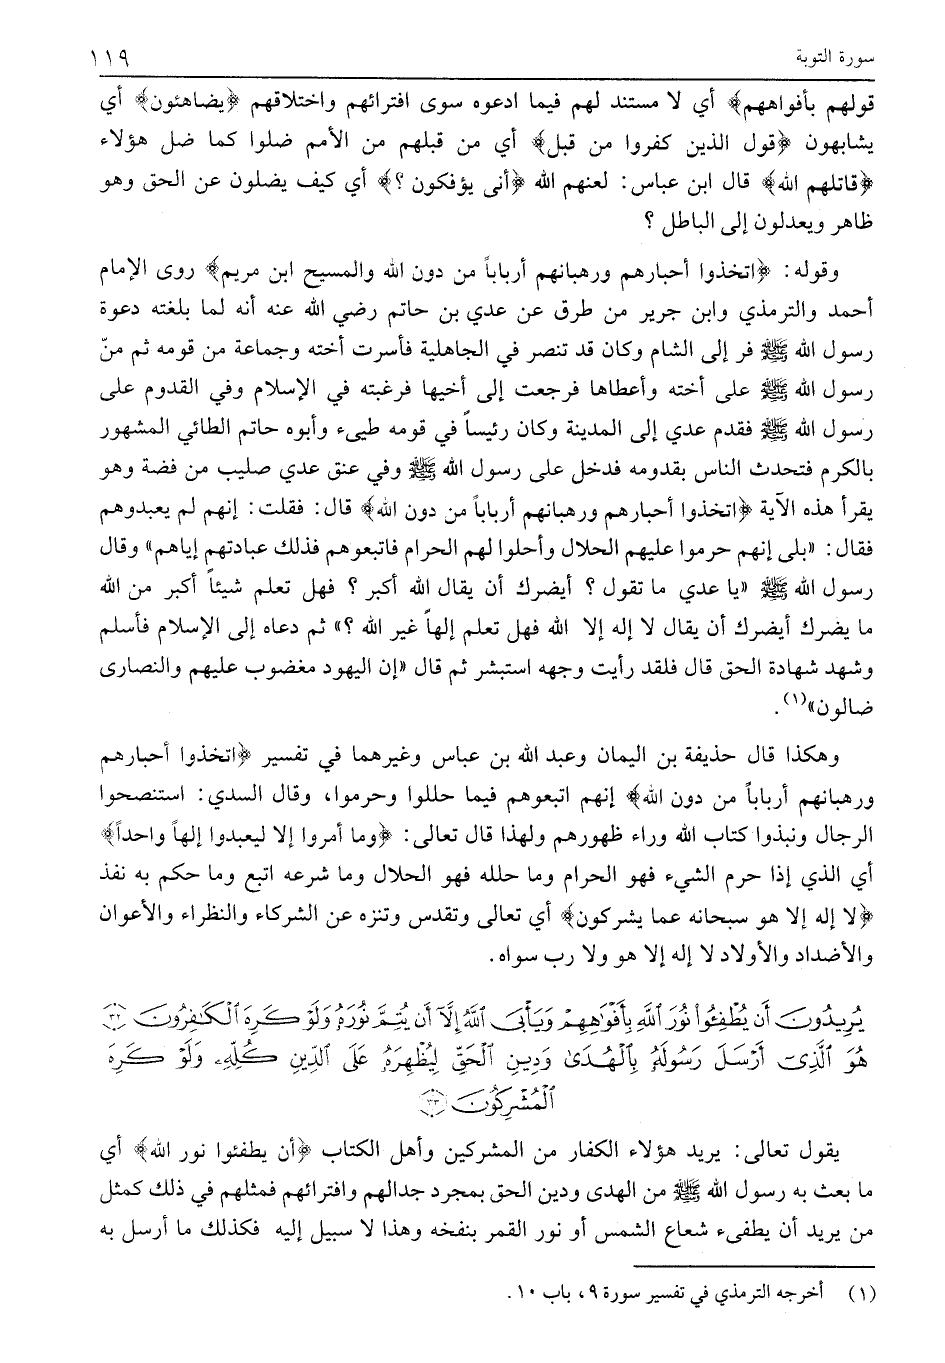 سورة التوبة ١١٩
قولهم بأفواههم﴾ أي لا مستند لهم فيما ادعوه سوى افترائهم واختلاقهم ﴿يضاهئون﴾ أي
يشابهون ﴿قول الذين كفروا من قبل﴾ أي من قبلهم من الأمم ضلوا كما ضل هؤلاء
﴿قاتلهم الله﴾ قال ابن عباس: لعنهم الله ﴿أنى يؤفكون ؟﴾ أي كيف يضلون عن الحق وهو
ظاهر ويعدلون إلى الباطل ؟
وقوله: ﴿اتخذوا أحبارهم ورهبانهم أرباباً من دون الله والمسيح ابن مريم﴾ روى الإمام
أحمد والترمذي وابن جرير من طرق عن عدي بن حاتم رضي الله عنه أنه لما بلغته دعوة
رسول الله ﷺ فر إلى الشام وكان قد تنصر في الجاهلية فأسرت أخته وجماعة من قومه ثم منّ
رسول الله ﷺ على أخته وأعطاها فرجعت إلى أخيها فرغبته في الإسلام وفي القدوم على
رسول الله ﷺ فقدم عدي إلى المدينة وكان رئيساً في قومه طيىء وأبوه حاتم الطائي المشهور
بالكرم فتحدث الناس بقدومه فدخل على رسول الله ﷺ وفي عنق عدي صليب من فضة وهو
يقرأ هذه الآية ﴿اتخذوا أحبارهم ورهبانهم أرباباً من دون الله﴾ قال: فقلت: إنهم لم يعبدوهم
فقال: «بلى إنهم حرموا عليهم الحلال وأحلوا لهم الحرام فاتبعوهم فذلك عبادتهم إياهم» وقال
رسول الله ﷺ «يا عدي ما تقول ؟ أيضرك أن يقال الله أكبر ؟ فهل تعلم شيئاً أكبر من الله
ما يضرك أيضرك أن يقال لا إله إلا الله فهل تعلم إلهاً غير الله ؟» ثم دعاه إلى الإسلام فأسلم
وشهد شهادة الحق قال فلقد رأيت وجهه استبشر ثم قال «إن اليهود مغضوب عليهم والنصارى
ضالون»(١).
وهكذا قال حذيفة بن اليمان وعبد الله بن عباس وغيرهما في تفسير ﴿اتخذوا أحبارهم
ورهبانهم أرباباً من دون الله﴾ إنهم اتبعوهم فيما حللوا وحرموا، وقال السدي: استنصحوا
الرجال ونبذوا كتاب الله وراء ظهورهم ولهذا قال تعالى: ﴿وما أمروا إلا ليعبدوا إلهاً واحداً﴾
أي الذي إذا حرم الشيء فهو الحرام وما حلله فهو الحلال وما شرعه اتبع وما حكم به نفذ
﴿لا إله إلا هو سبحانه عما يشركون﴾ أي تعالى وتقدس وتنزه عن الشركاء والنظراء والأعوان
والأضداد والأولاد لا إله إلا هو ولا رب سواه.
يُرِيدُونَ أَن يُطْفِئُوا۟ نُورَ ٱللَّهِ بِأَفْوَٰهِهِمْ وَيَأْبَى ٱللَّهُ إِلَّآ أَن يُتِمَّ نُورَهُۥ وَلَوْ كَرِهَ ٱلْكَٰفِرُونَ ٣٢
هُوَ ٱلَّذِىٓ أَرْسَلَ رَسُولَهُۥ بِٱلْهُدَىٰ وَدِينِ ٱلْحَقِّ لِيُظْهِرَهُۥ عَلَى ٱلدِّينِ كُلِّهِۦ وَلَوْ كَرِهَ
ٱلْمُشْرِكُونَ ٣٣
يقول تعالى: يريد هؤلاء الكفار من المشركين وأهل الكتاب ﴿أن يطفئوا نور الله﴾ أي
ما بعث به رسول الله ﷺ من الهدى ودين الحق بمجرد جدالهم وافترائهم فمثلهم في ذلك كمثل
من يريد أن يطفىء شعاع الشمس أو نور القمر بنفخه وهذا لا سبيل إليه فكذلك ما أرسل به
(١) أخرجه الترمذي في تفسير سورة ٩، باب ١٠.